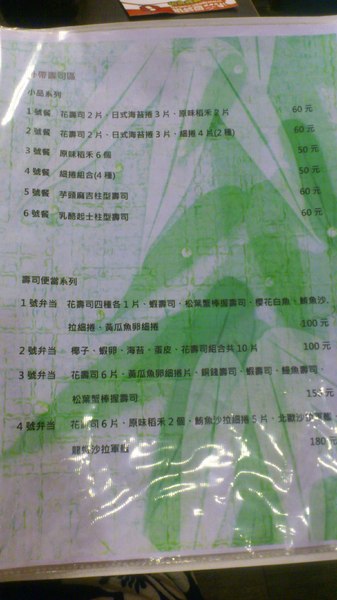 外帶壽司區
小品系列
1 號餐 花壽司 2 片、日式海苔捲 3 片、原味稻禾 2 片 60 元
2 號餐 花壽司 2 片、日式海苔捲 3 片、細捲 4 片(2 種) 60 元
3 號餐 原味稻禾 6 個 50 元
4 號餐 細捲組合(4 種) 50 元
5 號餐 芋頭麻吉柱型壽司 60 元
6 號餐 乳酪起士柱型壽司 60 元
壽司便當系列
1 號弁当 花壽司四種各 1 片、蝦壽司、松葉蟹棒握壽司、櫻花白魚、鮪魚沙
拉細捲、黃瓜魚卵細捲 100 元
2 號弁当 椰子、蝦卵、海苔、蛋皮、花壽司組合共 10 片 100 元
3 號弁当 花壽司 6 片、黃瓜魚卵細捲片、銅鑼壽司、蝦壽司、鰻魚壽司、
松葉蟹棒握壽司 155 元
4 號弁当 花壽司 6 片、原味稻禾 2 個、鮪魚沙拉細捲 5 片、北歐沙拉軍艦、
龍蝦沙拉軍艦 180 元